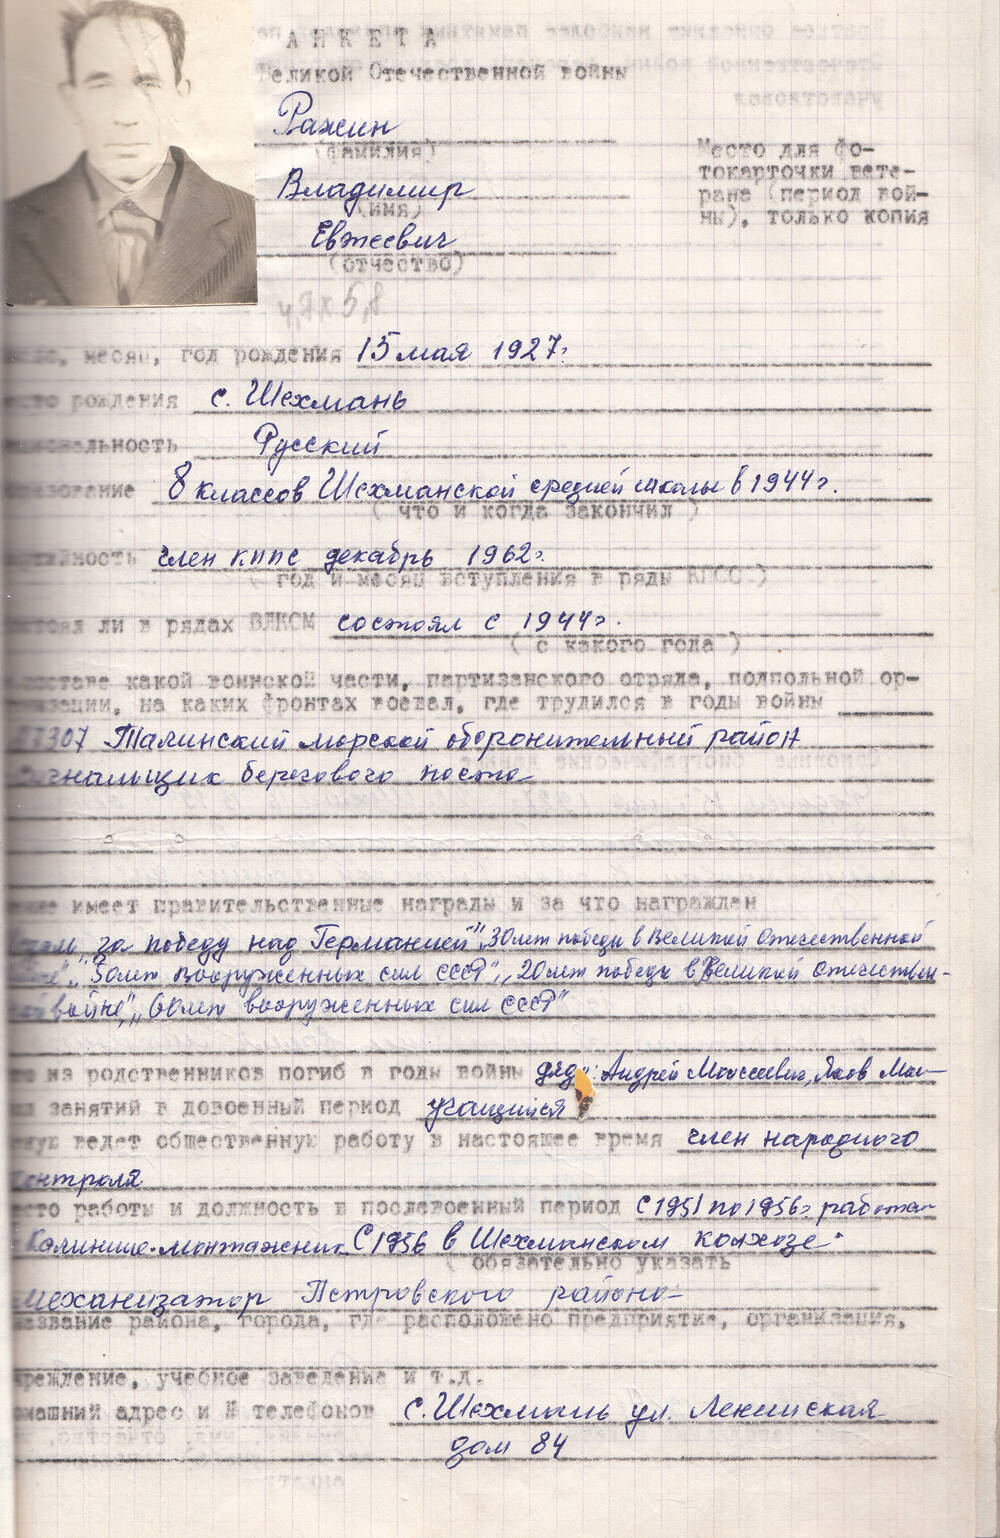 АНКЕТА
Великой Отечественной войны
Ражин
(фамилия)
Владимир
(имя)
Евжеевич
(отчество)
Место для фо-
токарточки вете-
рана (период вой-
ны), только копия
4,7 х 5,8
месяц, год рождения 15 мая 1927г.
рождения с. Шехмань
Русский
8 классов Шехманской средней школы в 1944г.
( что и когда закончил )
член КППС декабрь 1962г.
( год и месяц вступления в ряды КПСС )
ли в рядах ВЛКСМ состоял с 1944г.
( с какого года )
какой воинской части, партизанского отряда, подпольной ор-
на каких фронтах воевал, где трудился в годы войны
Талинский морской оборонительный район
берегового поста
имеет правительственные награды и за что награжден
„за победу над Германией" „30лет победы в Великой Отечественной
„50лет Вооруженных сил СССР" „20лет победы в Великой отечествен-
войне", „60лет вооруженных сил СССР"
из родственников погиб в годы войны дяди: Андрей Моисеевич, Яков Мои-
занятий в довоенный период учащийся
ведет общественную работу в настоящее время член народного
контроля
работы и должность в послевоенный период С 1951 по 1956г. работал
Калинине-монтажник С 1956 в Шехманском колхозе-
( обязательно указать
механизатор Петровского района
название района, города, где расположено предприятие, организация,
учреждение, учебное заведение и т.д.
адрес и № телефонов с. Шехмань ул. Ленинская
дом 84